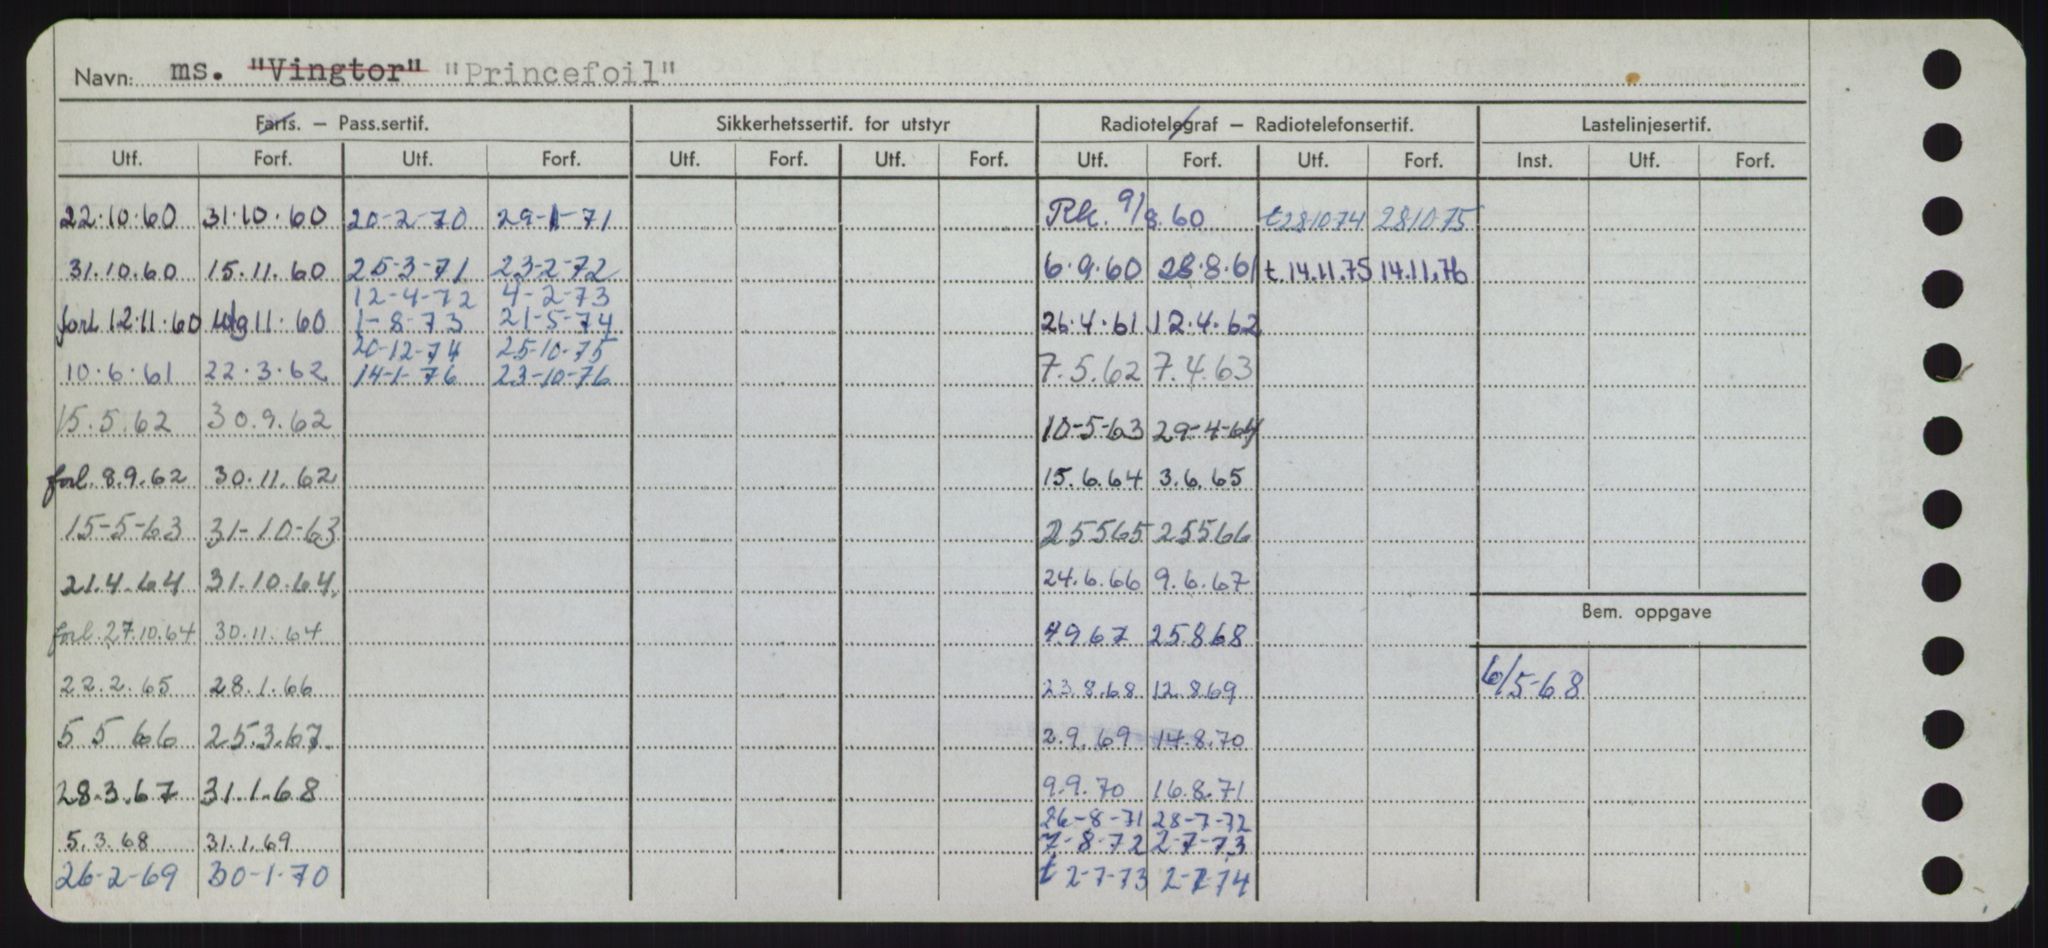 Navn: ms. "Vingtor" "Princefoil"
Farts. – Pass.sertif. Sikkerhetssertif. for utstyr Radiotelegraf – Radiotelefonsertif. Lastelinjesertif.
Utf. Forf. Utf. Forf. Utf. Forf. Utf. Forf. Utf. Forf. Utf. Forf. Inst. Utf. Forf.
22.10.60 31.10.60 20-2-70 29-1-71 Rk. 9/8.60 t 281074 281075
31.10.60 15.11.60 25-3-71 23-2-72 6.9.60 28.8.61 t. 14.11.75 14.11.76
12-4-72 4-2-73
forl 12.11.60 11.60 1-8-73 21-5-74 26.4.61 12.4.62
20-12-74 25-10-75
10.6.61 22.3.62 14-1-76 23-10-76 7.5.62 7.4.63
15.5.62 30.9.62 10-5-63 29-4-64
forl. 8.9.62 30.11.62 15.6.64 3.6.65
15-5-63 31-10-63 25565 25566
21.4.64 31.10.64. 24.6.66 9.6.67
Bem. oppgave
forl. 27.10.64 30.11.64 4.9.67 25.8.68
22.2.65 28.1.66 23.8.68 12.8.69 6/5-68
5 5 66 25.3.67 2.9.69 14.8.70
28.3.67 31.1.68 9.9.70 16.8.71
26-8-71 28-7-72
5.3.68 31.1.69 7-8-72 2-7-73
26-2-69 30-1-70 t 2-7-73 2-7-74